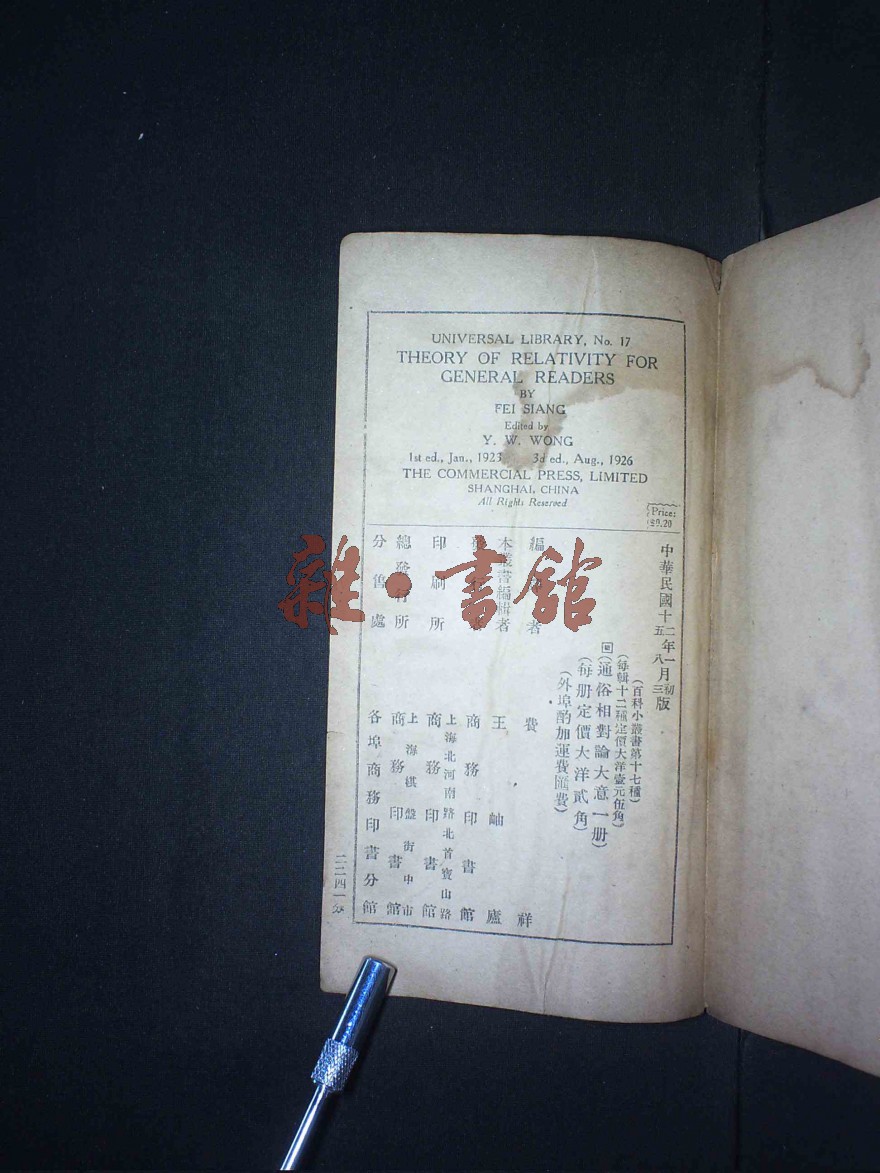 UNIVERSAL LIBRARY, No. 17
THEORY OF RELATIVITY FOR
GENERAL READERS
BY
FEI SIANG
Edited by
Y. W. WONG
1st ed., Jan., 1923 3d ed., Aug., 1926
THE COMMERCIAL PRESS, LIMITED
SHANGHAI, CHINA
All Rights Reserved
Price:
$0.20
中華民國十二年一月初版
五 八 三
(百科小叢書第十七種)
(每輯十二種定價大洋壹元伍角)
(通俗相對論大意一册)
(每册定價大洋貳角)
(外埠酌加運費匯費)
編 者 費祥
本叢書編輯者 王岫廬
商務印書館
印刷所 上海北河南路北首寶山路
商務印書館
總發行所 上海棋盤街中市
商務印書館
分售處 各埠商務印書分館
二二四一分
雜·書館